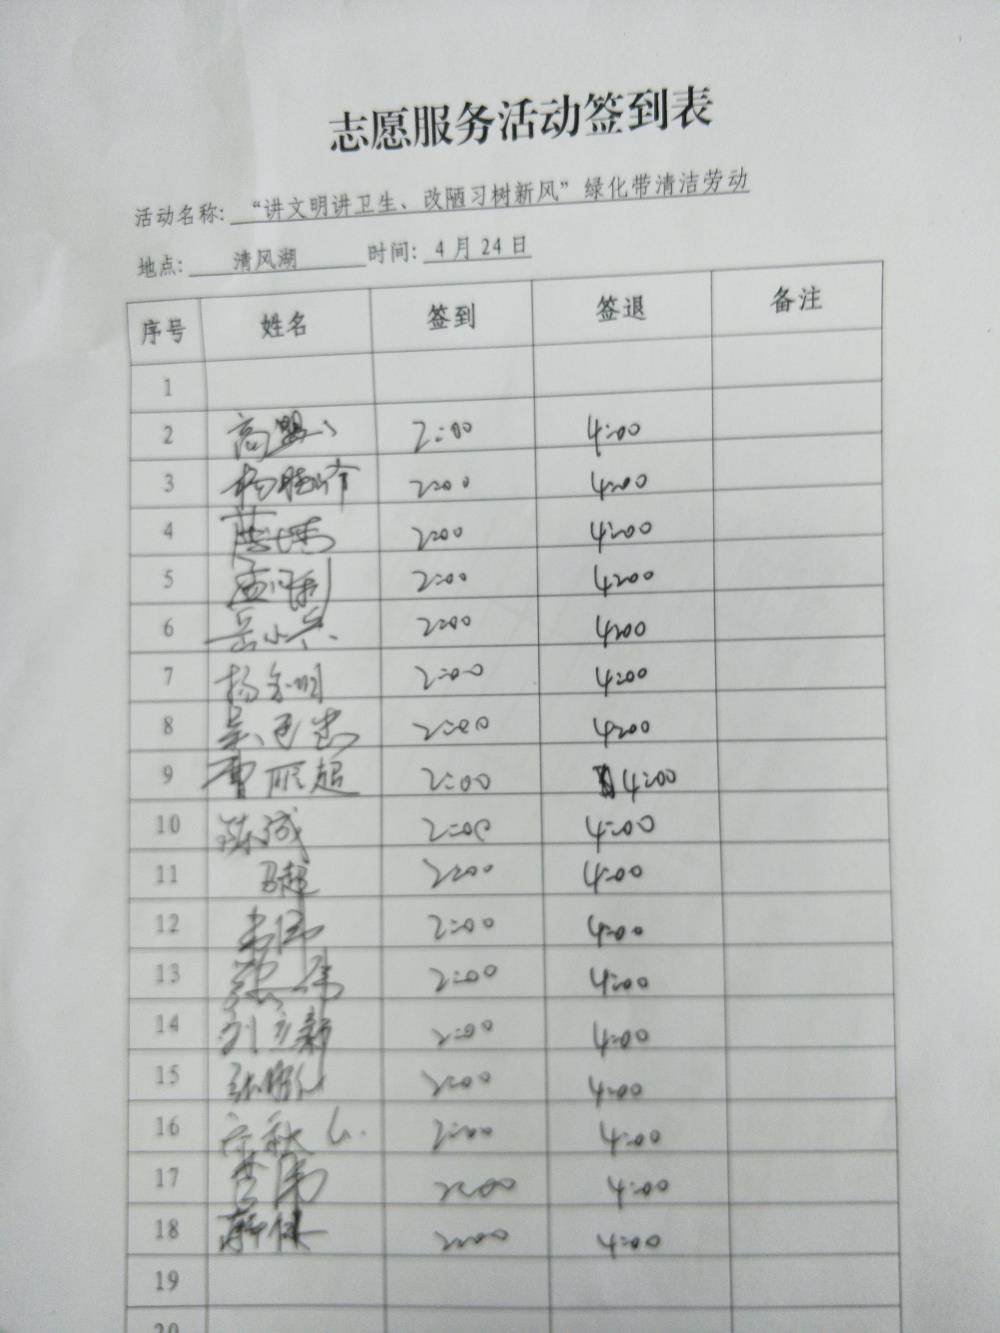 志愿服务活动签到表
活动名称: “讲文明讲卫生、改陋习树新风”绿化带清洁劳动
地点: 清风湖 时间: 4 月 24 日
序号 姓名 签到 签退 备注
1
2 2:00 4:00
3 2:00 4:00
4 2:00 4:00
5 2:00 4:00
6 岳小兵 2:00 4:00
7 杨金明 2:00 4:00
8 2:00 4:00
9 曹顺超 2:00 4:00
10 2:00 4:00
11 马超 2:00 4:00
12 2:00 4:00
13 2:00 4:00
14 刘立新 2:00 4:00
15 2:00 4:00
16 2:00 4:00
17 2:00 4:00
18 2:00 4:00
19
20